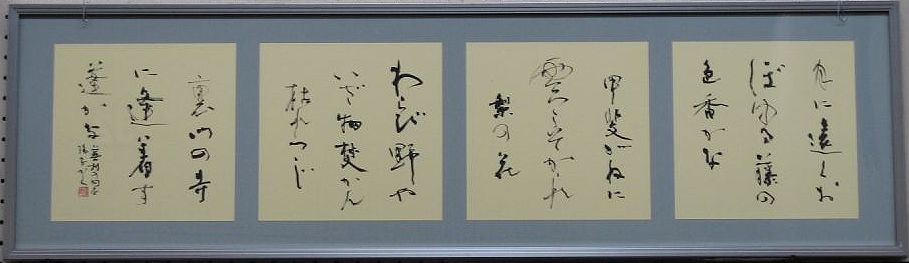 月に遠くお
ぼゆる藤の
色香かな
甲斐がねに
雲こそかゝれ
梨の花
わらび野や
いざ物焚かん
枯れつゝじ
裏門の寺
に逢着す
蓬かな